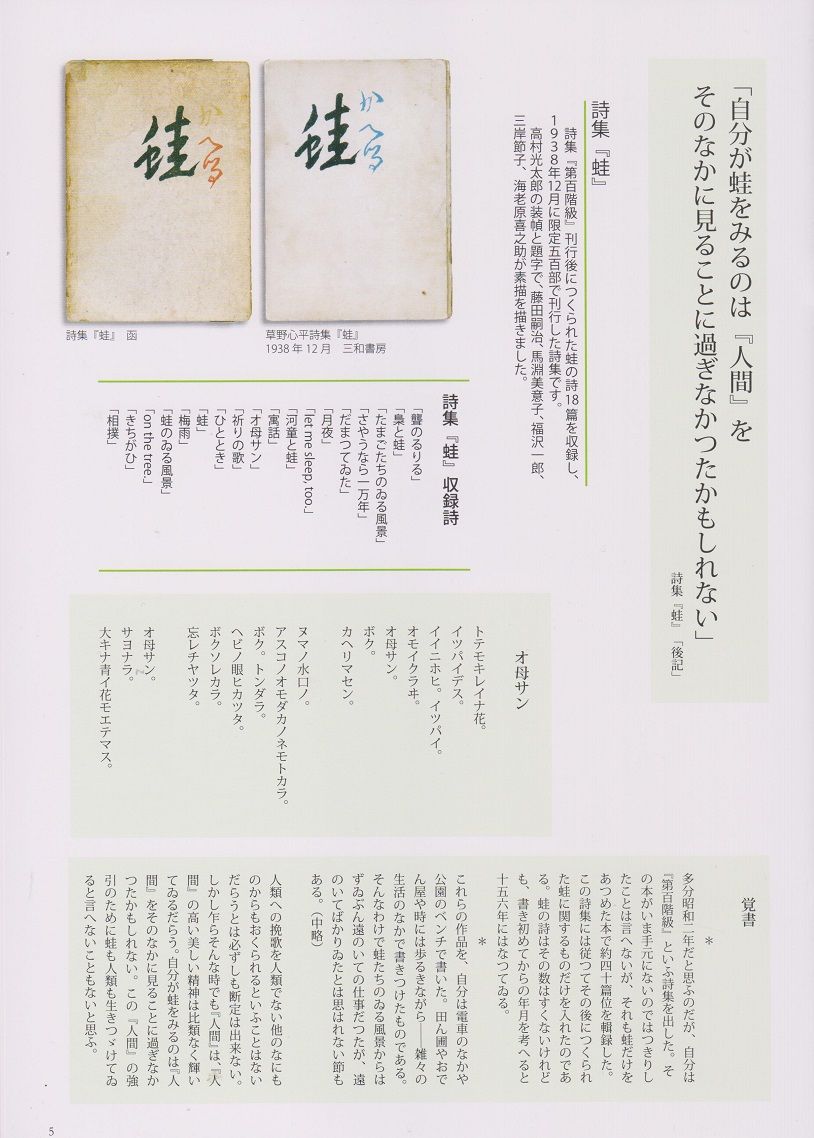 「自分が蛙をみるのは『人間』を
そのなかに見ることに過ぎなかつたかもしれない」
詩集『蛙』「後記」
詩集『蛙』
詩集『第百階級』刊行後につくられた蛙の詩18篇を収録し、
1938年12月に限定五百部で刊行した詩集です。
高村光太郎の装幀と題字で、藤田嗣治、馬淵美意子、福沢一郎、
三岸節子、海老原喜之助が素描を描きました。
かへる
蛙
草野心平詩集『蛙』
1938年12月　三和書房
かへる
蛙
詩集『蛙』　函
詩集『蛙』収録詩
「聾のるりる」
「梟と蛙」
「たまごたちのゐる風景」
「さやうなら一万年」
「だまつてゐた」
「月夜」
「let me sleep, too.」
「河童と蛙」
「寓話」
「オ母サン」
「祈りの歌」
「ひととき」
「蛙」
「梅雨」
「蛙のゐる風景」
「on the tree.」
「きちがひ」
「相撲」
オ母サン
トテモキレイナ花。
イツパイデス。
イイニホヒ。イツパイ。
オモイクラヰ。
オ母サン。
ボク。
カヘリマセン。
ヌマノ水口ノ。
アスコノオモダカノネモトカラ。
ボク。トンダラ。
ヘビノ眼ヒカツタ。
ボクソレカラ。
忘レチヤツタ。
オ母サン。
サヨナラ。
大キナ青イ花モエテマス。
覚書
＊
多分昭和二年だと思ふのだが、自分は
『第百階級』といふ詩集を出した。そ
の本がいま手元にないのではつきりし
たことは言へないが、それも蛙だけを
あつめた本で約四十篇位を輯録した。
この詩集には従つてその後につくられ
た蛙に関するものだけを入れたのであ
る。蛙の詩はその数はすくないけれど
も、書き初めてからの年月を考へると
十五六年にはなつてゐる。
＊
これらの作品を、自分は電車のなかや
公園のベンチで書いた。田ん圃やおで
ん屋や時には歩るきながら——雑々の
生活のなかで書きつけたものである。
そんなわけで蛙たちのゐる風景からは
ずゐぶん遠のいての仕事だつたが、遠
のいてばかりゐたとは思はれない節も
ある。（中略）
人類への挽歌を人類でない他のなにも
のからもおくられるといふことはない
だらうとは必ずしも断定は出来ない。
しかし乍らそんな時でも『人間』は、『人
間』の高い美しい精神は比類なく輝い
てゐるだらう。自分が蛙をみるのは『人
間』をそのなかに見ることに過ぎなか
つたかもしれない。この『人間』の強
引のために蛙も人類も生きつゞけてゐ
ると言へないこともないと思ふ。
5